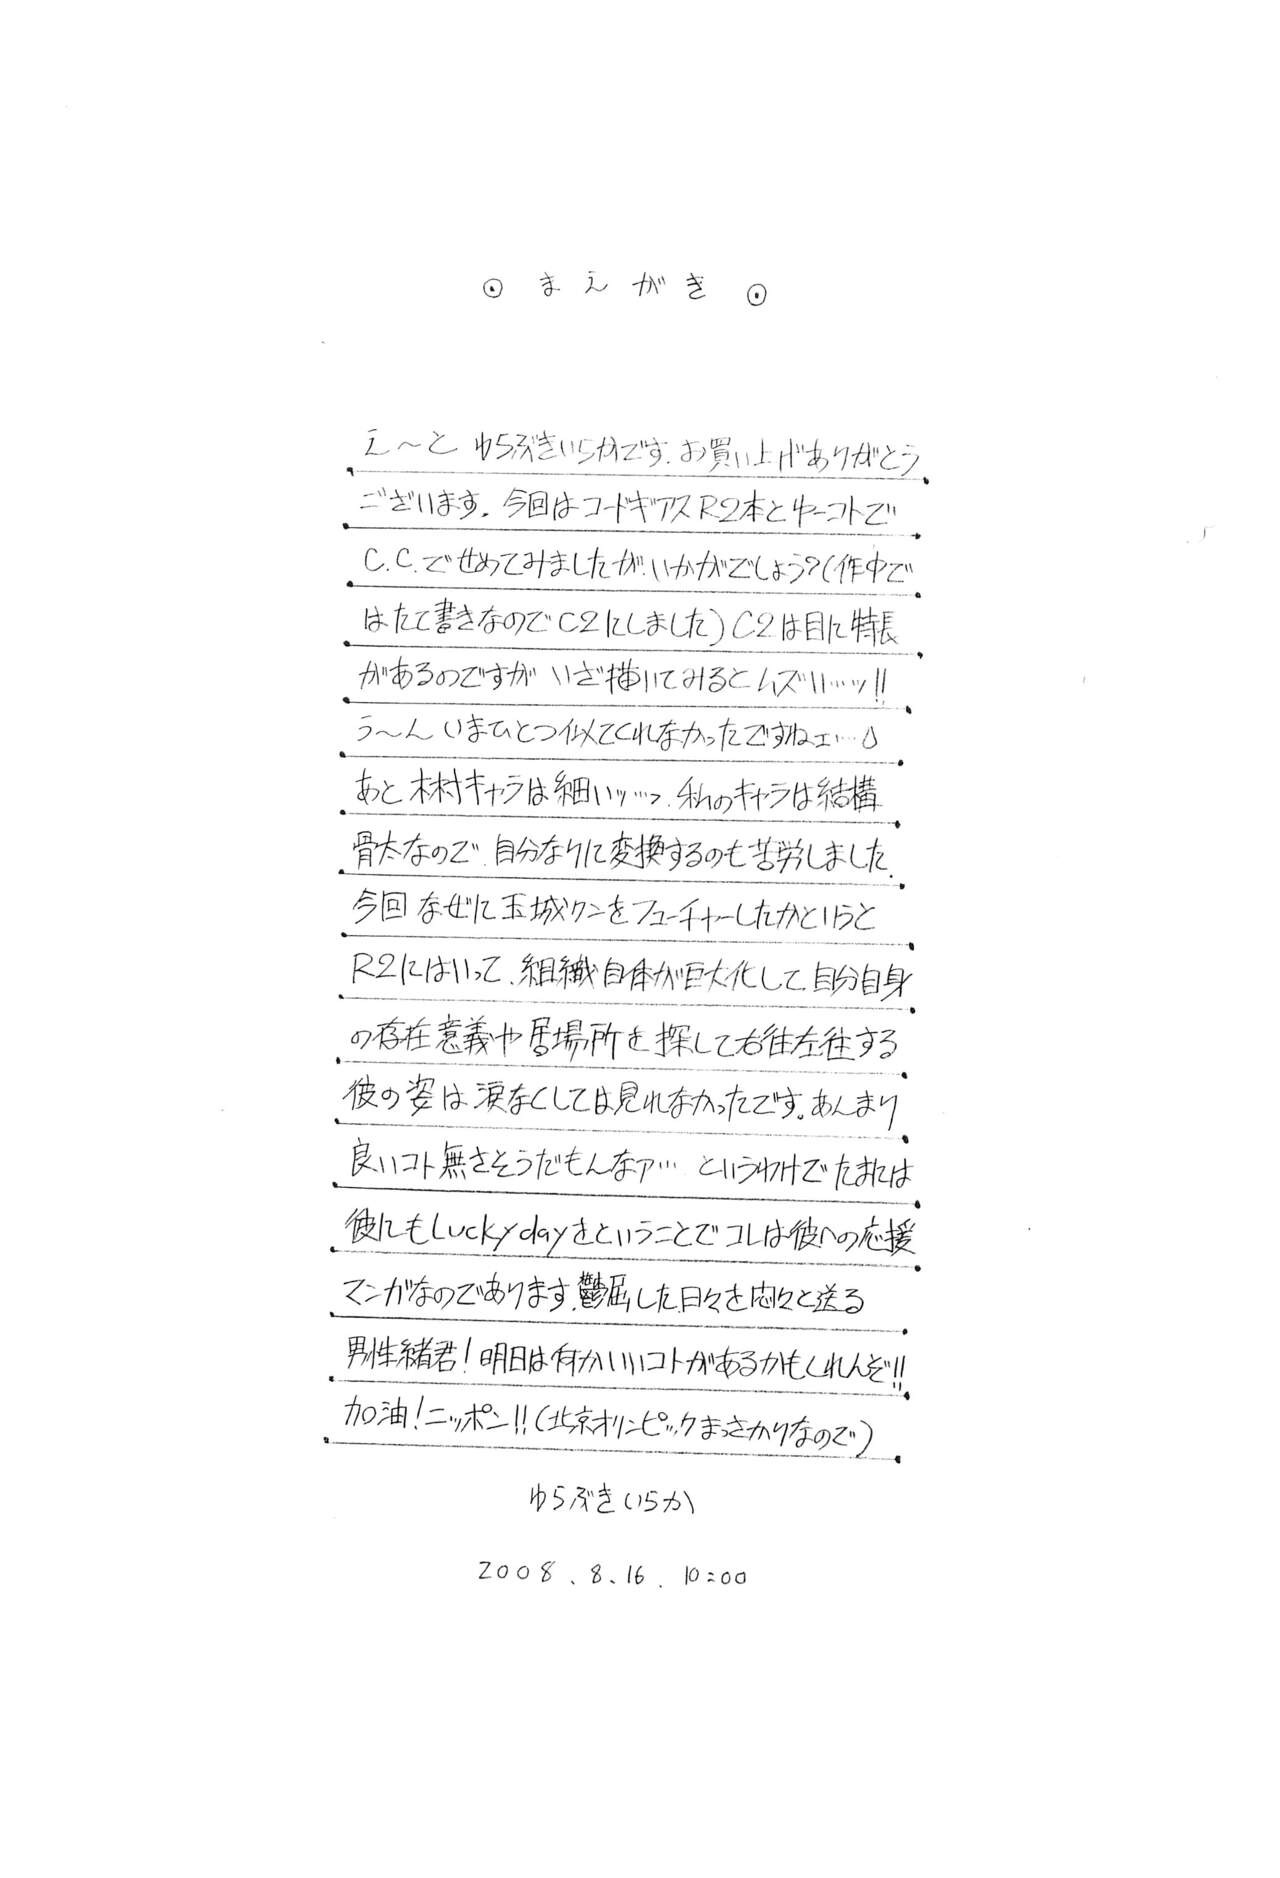 ⊙ まえがき ⊙
え〜と ゆらぶきいらかです. お買い上げありがとう
ございます. 今回はコードギアスR2本とゆーコトで
C.C.でせめてみましたが.いかがでしょう?(作中で
はたて書きなのでC2にしました)C2は目に特長
があるのですが いざ描いてみるとムズい…ッ!!
う〜ん いまひとつ似てくれなかったですねェ…
あと 木村キャラは細いッ…っ. 私のキャラは結構
骨太なので. 自分なりに変換するのも苦労しました.
今回 なぜに玉城クンをフューチャーしたかというと
R2にはいって. 組織自体が巨大化して自分自身
の存在意義や居場所を探して右往左往する
彼の姿は涙なくしては見れなかったです。あんまり
良いコト無さそうだもんなァ… というわけでたまには
彼にもLucky dayをということでコレは彼への応援
マンガなのであります. 鬱屈した日々を悶々と送る
男性緒君! 明日は何かいいコトがあるかもしれんぞ!!
加油! ニッポン!!(北京オリンピックまっさかりなので)
ゆらぶきいらか
2008. 8. 16. 10:00